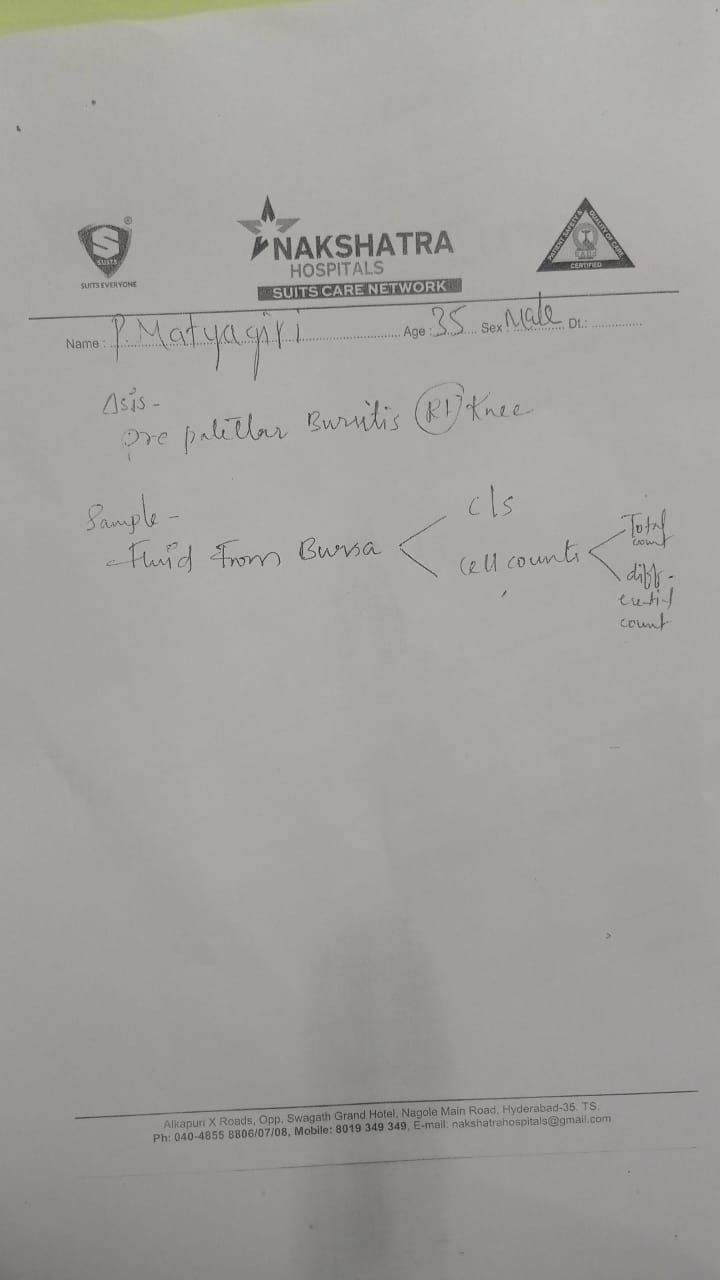 S
SUITS
®
SUITS EVERYONE
NAKSHATRA
HOSPITALS
SUITS CARE NETWORK
PATIENT SAFETY & QUALITY OF CARE
CERTIFIED
Name : P. Matyagiri Age : 35 Sex Male Dt.:
Δsis -
pre patellar Bursitis (Rt) Knee
Sample -
- Fluid From Bursa < c/s
cell counts < Total count
diff-
erential
count
Alkapuri X Roads, Opp. Swagath Grand Hotel, Nagole Main Road, Hyderabad-35. TS.
Ph: 040-4855 8806/07/08, Mobile: 8019 349 349, E-mail: nakshatrahospitals@gmail.com